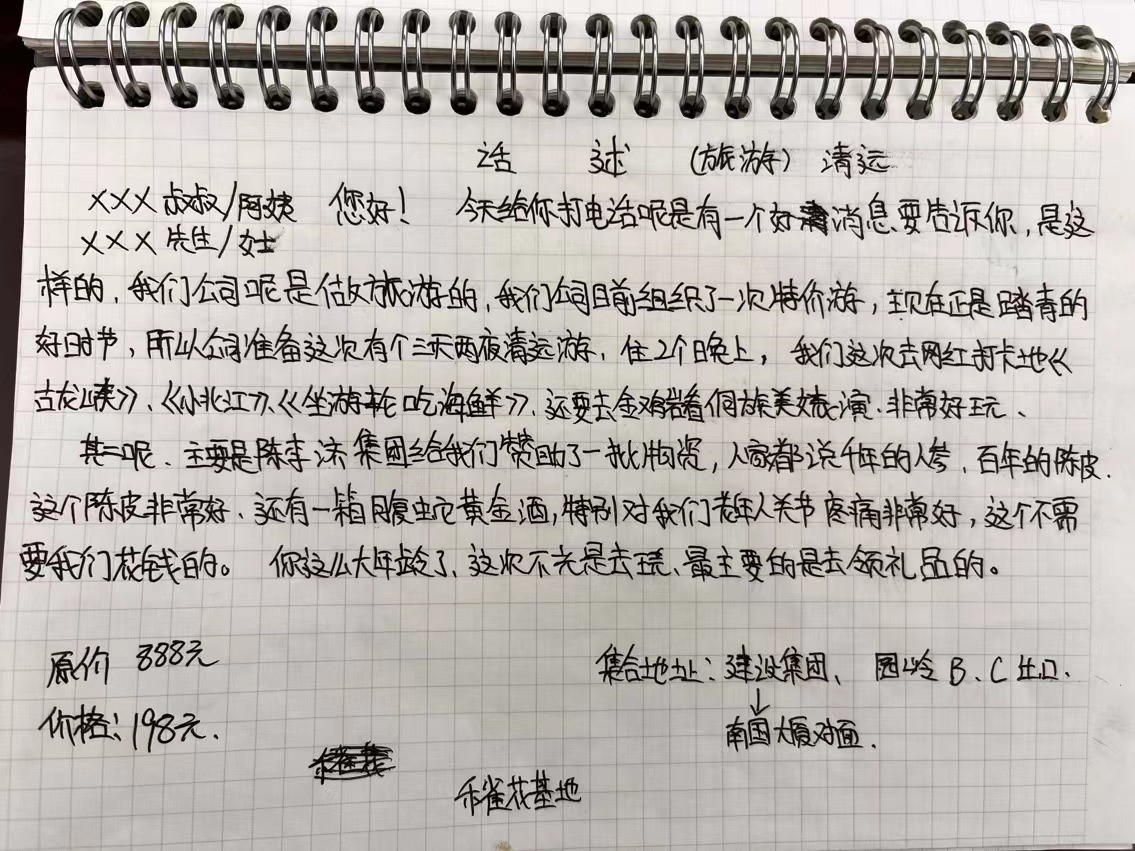 话 述 (旅游) 清远
XXX 叔叔/阿姨 您好! 今天给你打电话呢是有一个好消息要告诉你,是这
XXX 先生/女士
样的,我们公司呢是做旅游的,我们公司目前组织了一次特价游,现在正是踏青的
好时节,所以公司准备这次有个三天两夜清远游、住2个晚上,我们这次去网红打卡地《
古龙峡》、《小北江》、《坐游轮吃海鲜》、还要去金鸡岩看侗族美婊演、非常好玩、
其二呢、主要是陈李济集团给我们赞助了一批物资,人家都说千年的人参、百年的陈皮.
这个陈皮非常好、还有一箱腹蛇黄金酒,特别对我们老年人关节疼痛非常好,这个不需
要我们花钱的。 你这么大年龄了、这次不光是去玩、最主要的是去领礼品的。
原价 888元
集合地址:建设集团、 园岭 B、C 出口.
价格:198元.
南国大厦对面.
禾雀花基地